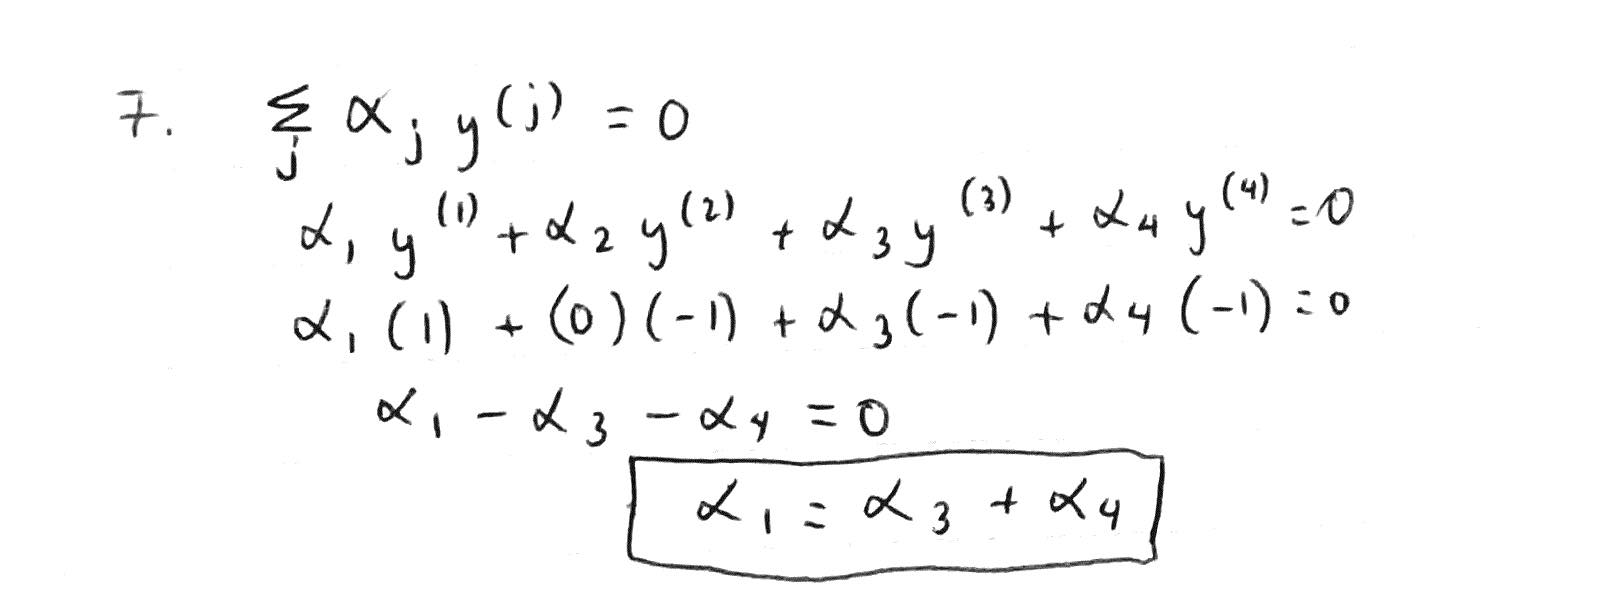 7. Σ_j α_j y^(j) = 0
α_1 y^(1) + α_2 y^(2) + α_3 y^(3) + α_4 y^(4) = 0
α_1 (1) + (0)(-1) + α_3 (-1) + α_4 (-1) = 0
α_1 - α_3 - α_4 = 0
α_1 = α_3 + α_4